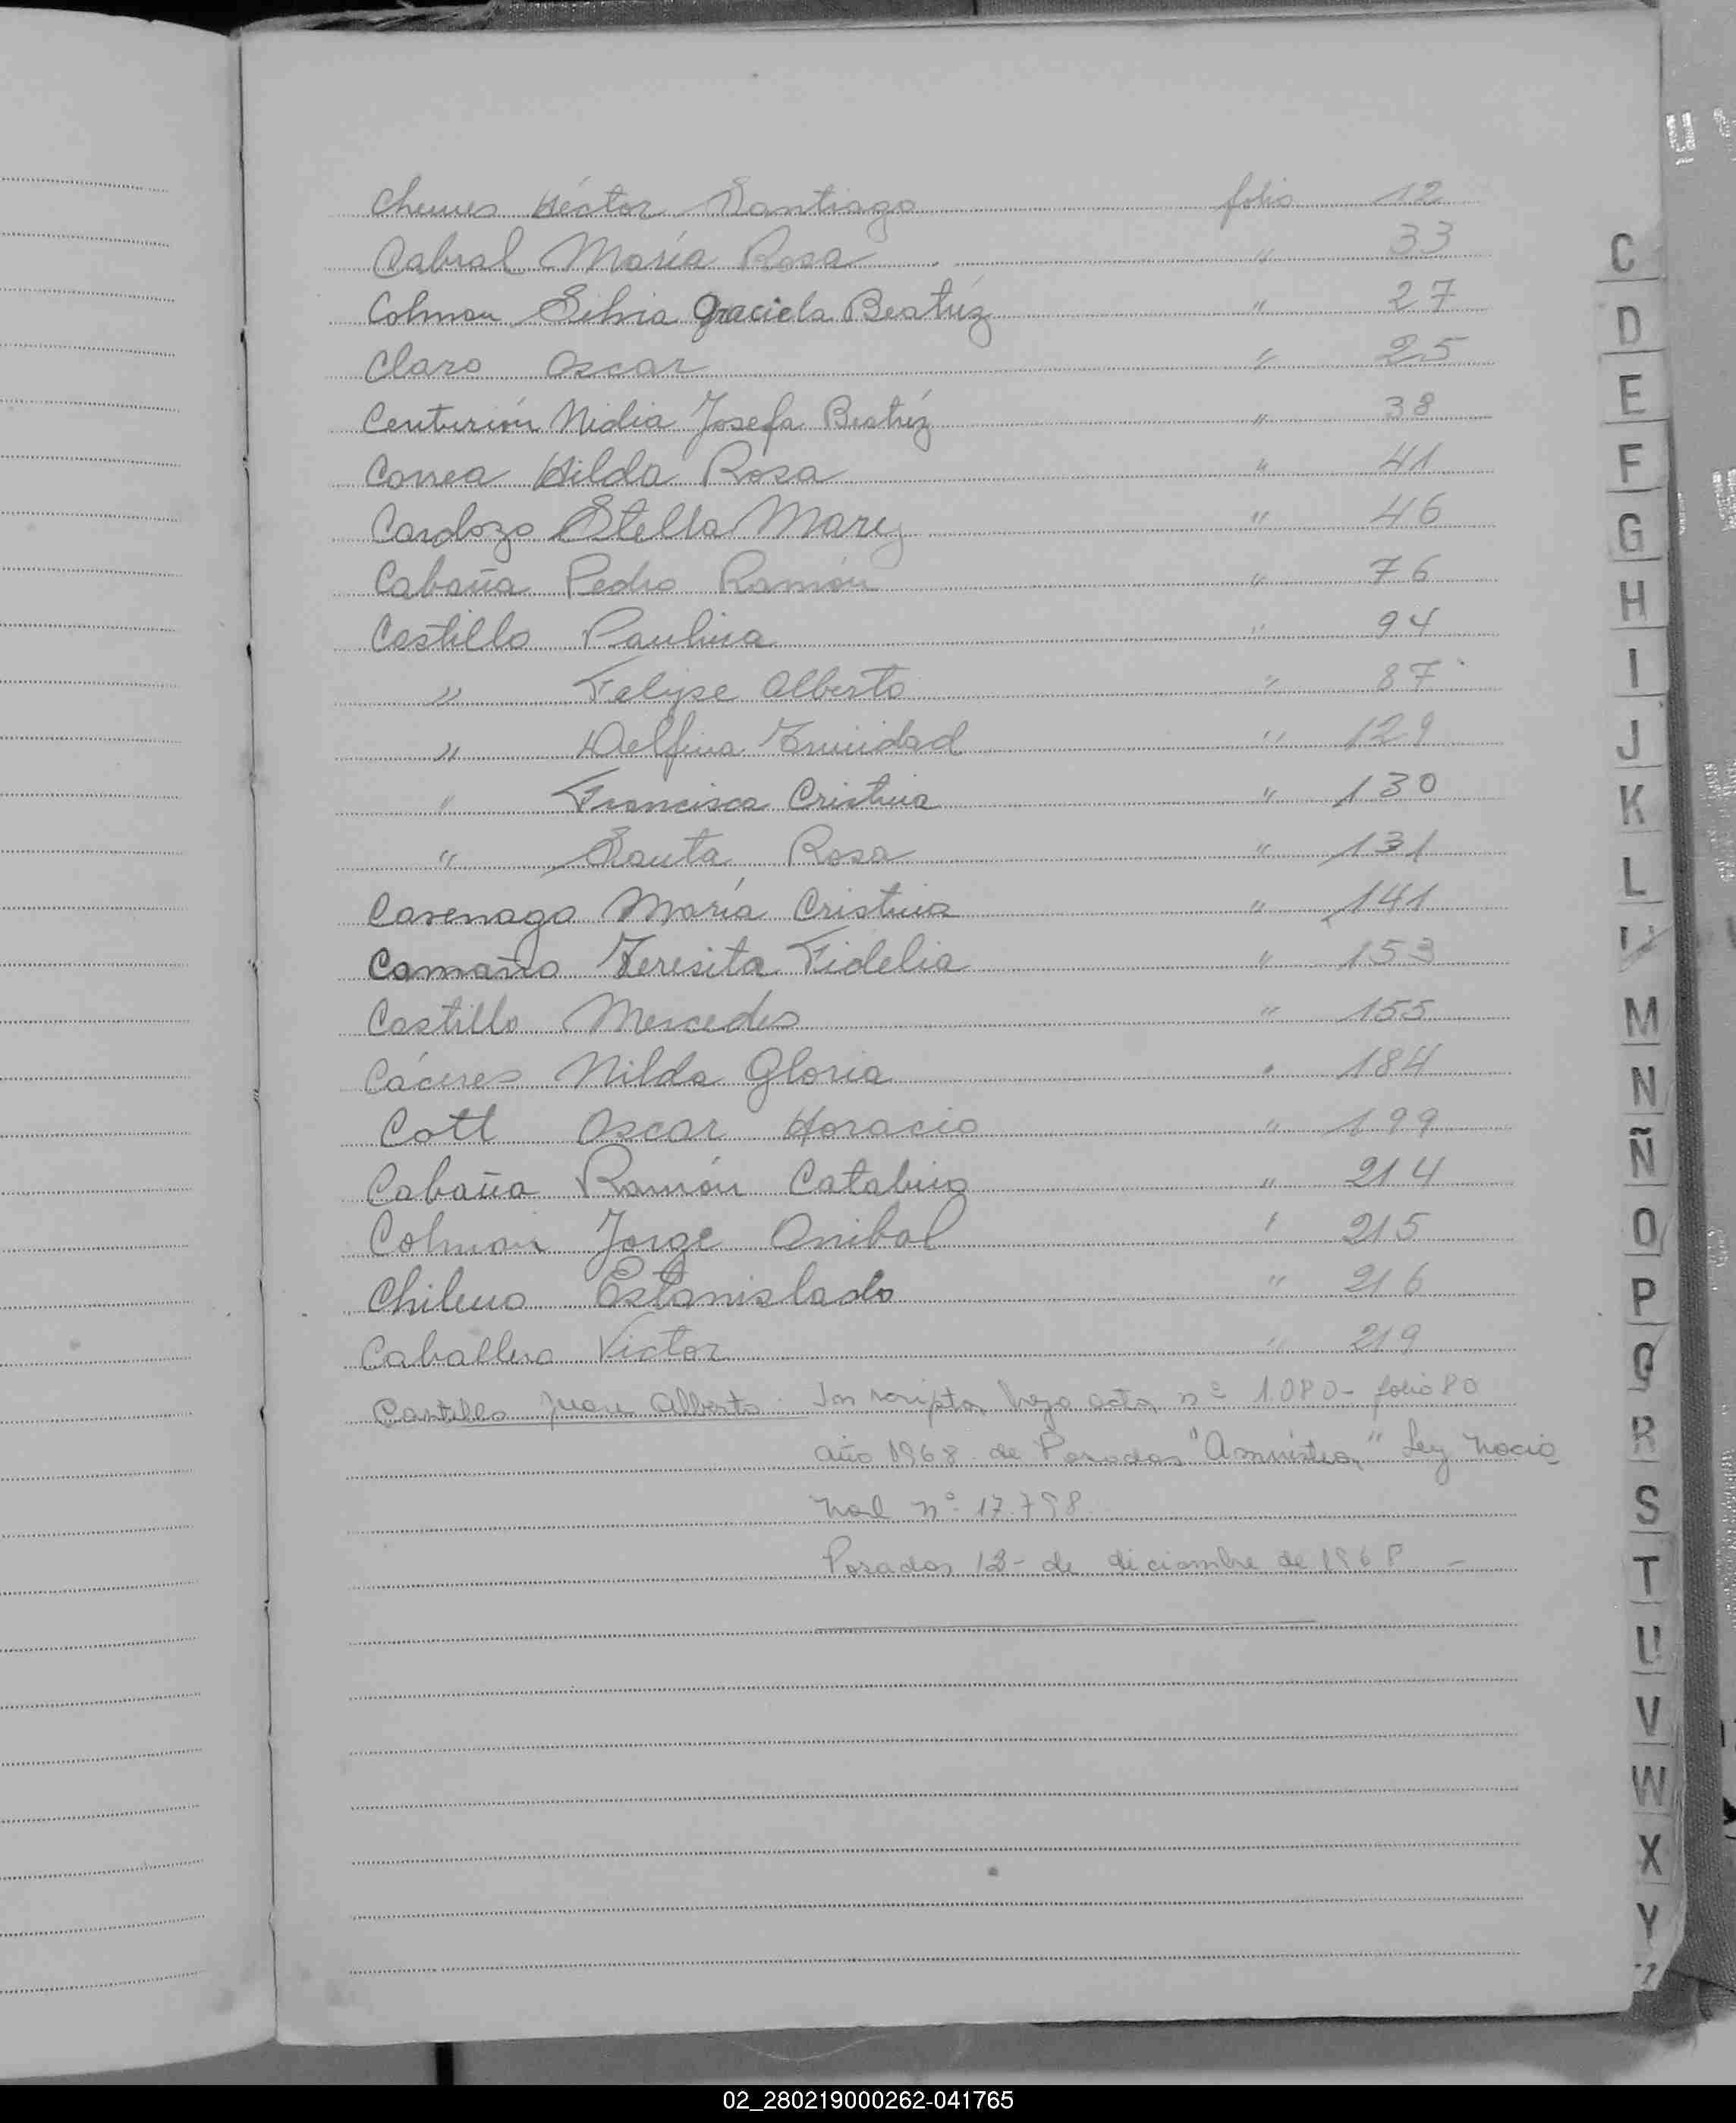 Chemes Héctor Santiago folio 12
Cabral María Rosa " 33
Colman Silvia Graciela Beatríz " 27
Claro Oscar " 25
Centurión Nidia Josefa Beatríz " 38
Correa Hilda Rosa " 41
Cardozo Stella Mary " 46
Cabaña Pedro Ramón " 76
Castillo Paulina " 94
" Felipe Alberto " 87
" Delfina Trinidad " 129
" Francisca Cristina " 130
" Santa Rosa " 131
Casenago María Cristina " 141
Camaño Teresita Fidelia " 153
Castillo Mercedes " 155
Cáceres Nilda Gloria " 184
Cott Oscar Horacio " 199
Cabaña Ramón Catalino " 214
Colman Jorge Anibal " 215
Chileno Estanislado " 216
Caballero Victor " 219
Castillo Juan Alberto: Inscripta bajo acta nº 1.080- folio 80
año 1968 de Posadas "Amnistia" Ley Nacio
nal nº 17.798
Posadas 13- de diciembre de 1968 -
C
D
E
F
G
H
I
J
K
L
M
N
Ñ
O
P
Q
R
S
T
U
V
W
X
Y
02_280219000262-041765